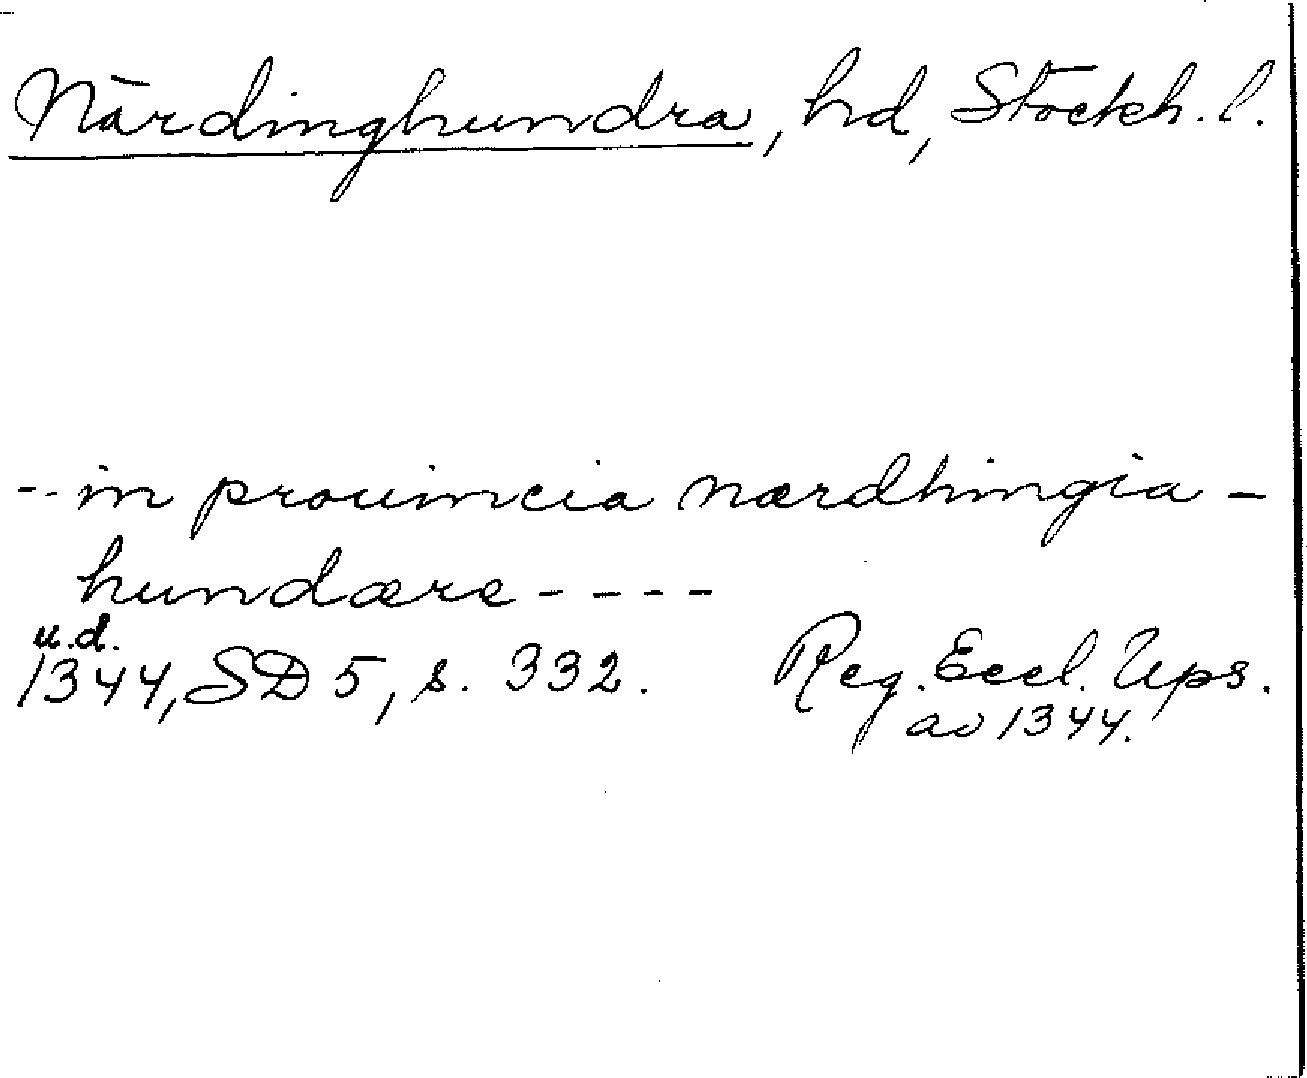 Närdinghundra, hd, Stockh. l.
-- in prouincia nærdhingia -
hundære ----
u.d.
1344, SD 5, s. 332. Reg. Eccl. Ups.
av 1344.